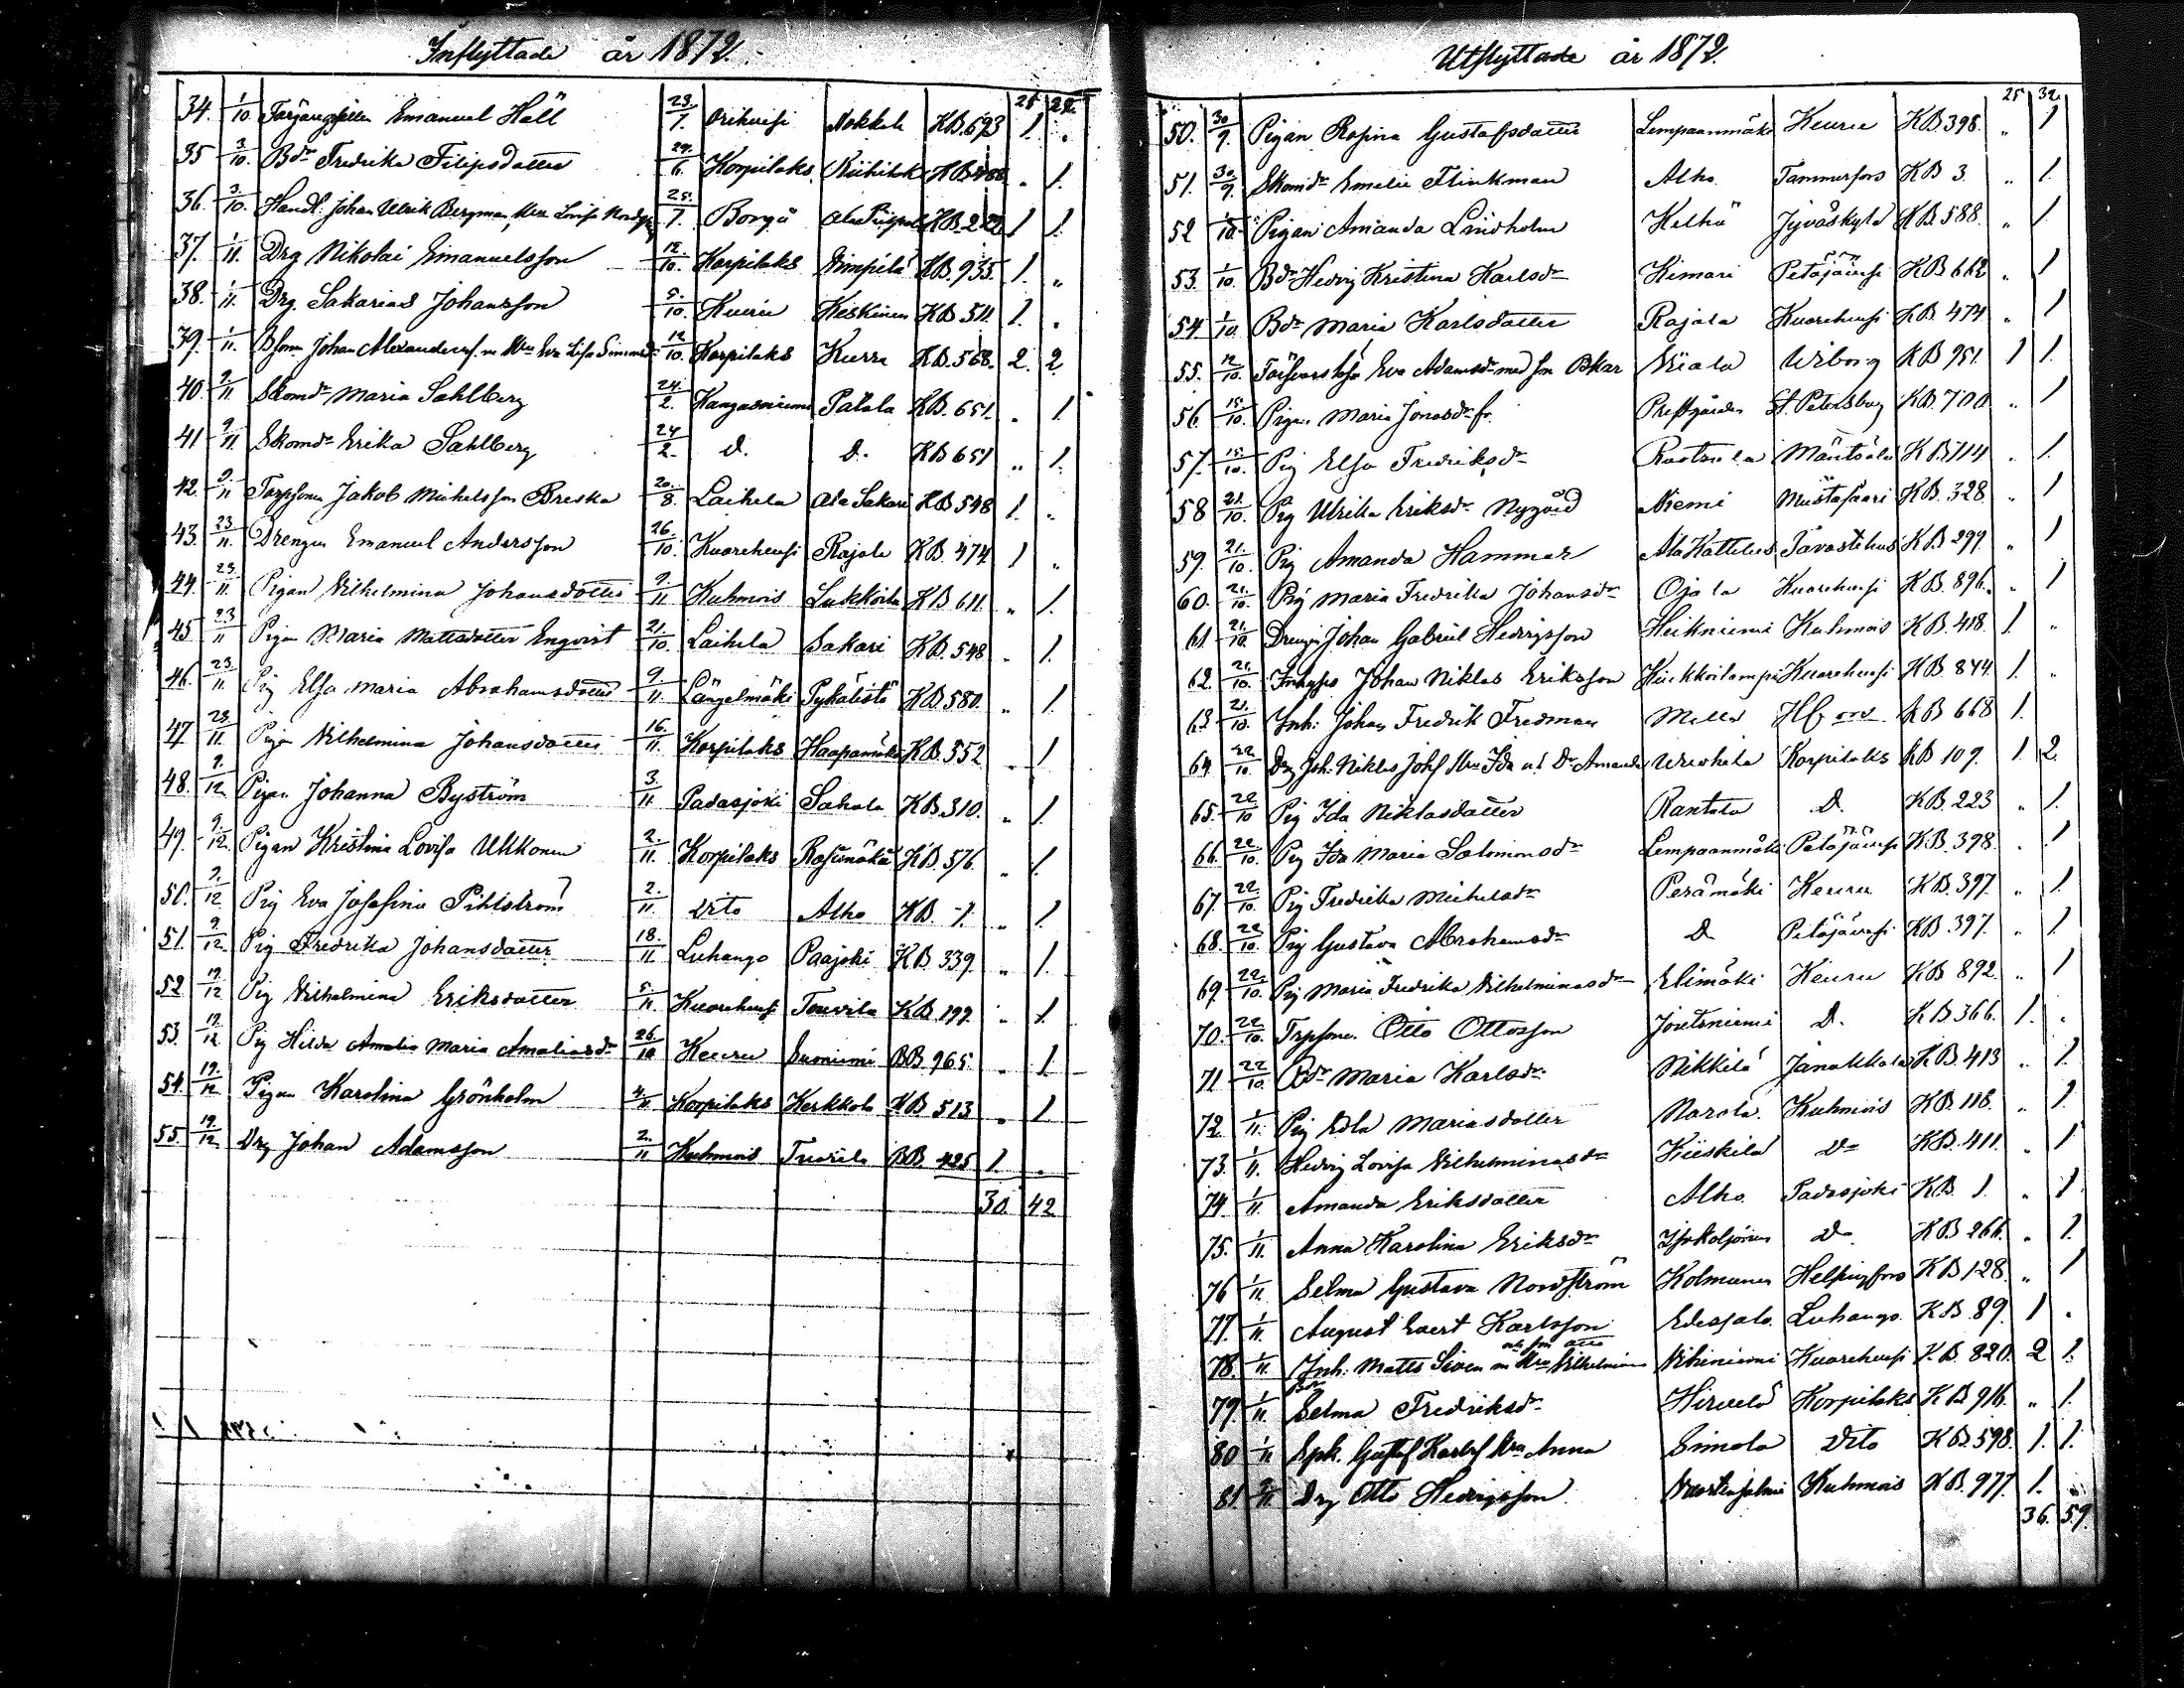 Inflyttade år 1872.
25 22.
34. 1/10. Emanuel Häll 23./7. Orihvesi Nokkola KB. 693 1. „
35 3/10. Bdr Fredrika Filipsdotter 29./6. Korpilaks KB „ 1.
36. 3/10. Handl. Johan Ulrik Bergman, Hru Lovisa 25./7. Borgå KB. 1 1.
37. 1/11. Drg Nikolai Emanuelsson 12./10. Korpilaks KB. 935. 1. „
38. 1/11. Drg. Sakarias Johansson 5./10. Keuru Keskinen KB 511. 1. „
39. 1/11. Johan Hru Eva Lisa Simonsdr 12/10. Korpilaks Kurra KB. 568. 2. 2.
40. 9/11. Skomdr Maria Sahlberg 24/2. Kangasniemi Patala KB. 651. „ 1.
41 9/11. Skomdr Erika Sahlberg 24/2. D. D. KB 651 „ 1.
42. 9/11 Jakob Michelsson Breska 20./8. Laihela Ala Sakari KB 548 1. „
43. 23/11. Drengen Emanuel Andersson 26./10. Kuorehvesi Rajala KB. 474 1 „
44. 23./11. Pigan Vilhelmina Johansdotter 9./11. Kuhmois Lukkoila KB 611. „ 1.
45. 23/11 Pigan Maria Mattsdotter Enqvist 21./10. Laihela Sakari KB. 548 „ 1.
46. 23./11. Pig Elsa Maria Abrahamsdotter 9/11. Längelmäki Pykälistö KB 580. „ 1.
47 23./11. Pigan Vilhelmina Johansdotter 16./11. Korpilaks Haapamäki KB. 552 „ 1
48. 9./12. Pigan Johanna Byström 3./11. Padasjoki Sahala KB. 310. „ 1.
49. 9./12. Pigan Kristina Lovisa Ukkonen 2./11. Korpilaks KB. 576. „ 1.
50. 9./12 Pig Eva Josefina Pihlström 2./11. Dito Alho KB. 1. „ 1.
51. 9./12. Pig Fredrika Johansdotter 18./11. Luhango Paajoki KB 339. „ 1.
52 19./12 Pig Vilhelmina Eriksdotter 5./11. Kuorehvesi Touvila KB. 199. „ 1.
53. 19./12 Pig Hilda Amalia Maria Amaliasdr 26./10 Keuru Suoniemi BB 965. „ 1.
54. 19./12 Pigan Karolina Grönholm 4./11. Korpilaks Kerkkola KB 513 „ 1
55. 19./12. Drg Johan Adamsson 2./11 Kuhmois Tuorila BB 425 1 „
30. 42
Utflyttade år 1872.
25 32.
50. 30/9. Pigan Rosina Gustafsdotter Lempaanmäki Keuru KB 398. „ 1
51. 30/9. Skomdr Emelie Flinkman Alho Tammerfors KB 3. „ 1.
52 1/10. Pigan Amanda Lindholm Kelhä Jyväskylä KB. 588. „ 1.
53. 1/10. Bdr Hedvig Kristina Karlsdr Kimari Petäjävesi KB 662 „ 1
54. 1/10. Bdr Maria Karlsdotter Rajala Kuorehvesi KB 474 „ 1
55. 12/10. Eva Adamsdr med son Oskar Wiborg KB 951. 1 1.
56. 15./10. Pigan Maria Jonasdr fr. Prestgården St. Petersburg KB. 700 „ 1
57. 15./10. Pig Elsa Fredriksdr Rastula Mäntsälä KB. 714 „ 1.
58 21./10. Pig Ulrika Eriksdr Nygård Niemi Mustasaari KB. 328. „ 1
59. 21./10. Pig Amanda Hammar Ala Kattelus Tavastehus KB 299. „ 1
60. 21./10. Pig Maria Fredrika Johansdr Ojala Kuorehvesi KB. 896. „ 1
61. 21./10. Drengen Johan Gabriel Hedvigsson Heikniemi Kuhmois KB. 418. 1. „
62. 21./10. Johan Niklas Eriksson Kuorehvesi KB. 844. 1. „
63 21./10. Inh: Johan Fredrik Fredman KB 668 1.
64 22/10. Drg Joh. Niklas Johs Hru Ida o. Dr Amanda Korpilaks KB 109. 1. 2.
65. 22/10 Pig Ida Niklasdotter Rantala D. KB. 223 „ 1.
66. 22/10. Pig Ida Maria Salomonsdr Lempaanmäki Petäjävesi KB. 398. „ 1
67. 22./10. Pig Fredrika Michelsdr Perämäki Keuru KB. 397. „ 1.
68. 22/10. Pig Gustava Abrahamsdr D Petäjävesi KB. 397. „ 1
69. 22/10. Pig Maria Fredrika Vilhelminasdr Elimäki Keuru KB 892. „ 1
70. 22/10. Otto Ottosson Joutsniemi D. KB 366. 1. „
71 22/10. Bdr Maria Karlsdr Nikkilä Janakkala KB. 413 „ 1.
72. 1/11. Pig Edla Mariasdotter Narola Kuhmois KB. 118. „ 1.
73. 1/11. Hedvig Lovisa Vilhelminasdr Kiiskilä Do KB. 411. „ 1
74. 1/11. Amanda Eriksdotter Alho Padasjoki KB. 1. „ 1.
75. 1/11. Anna Karolina Eriksdr Do KB. 266. „ 1.
76 1/11. Selma Gustava Nordström Kolmunen Helsingfors KB 128. „ 1
77. 1/11. August Evert Karlsson Edessalo Luhango KB. 89. 1 „
78. 1/11. Inh. Matts Siven m Hru Vilhelmina Kuorehvesi KB. 820. 2 1.
79. 1/11. Selma Fredriksdr Hirvelä Korpilaks KB 916. „ 1.
80 1/11 Gustaf Karlsf Hru Anna Simola Dito KB. 598. 1. 1.
81. Drg Otto Hedvigsson Kuhmois KB. 977. 1. „
36. 59.